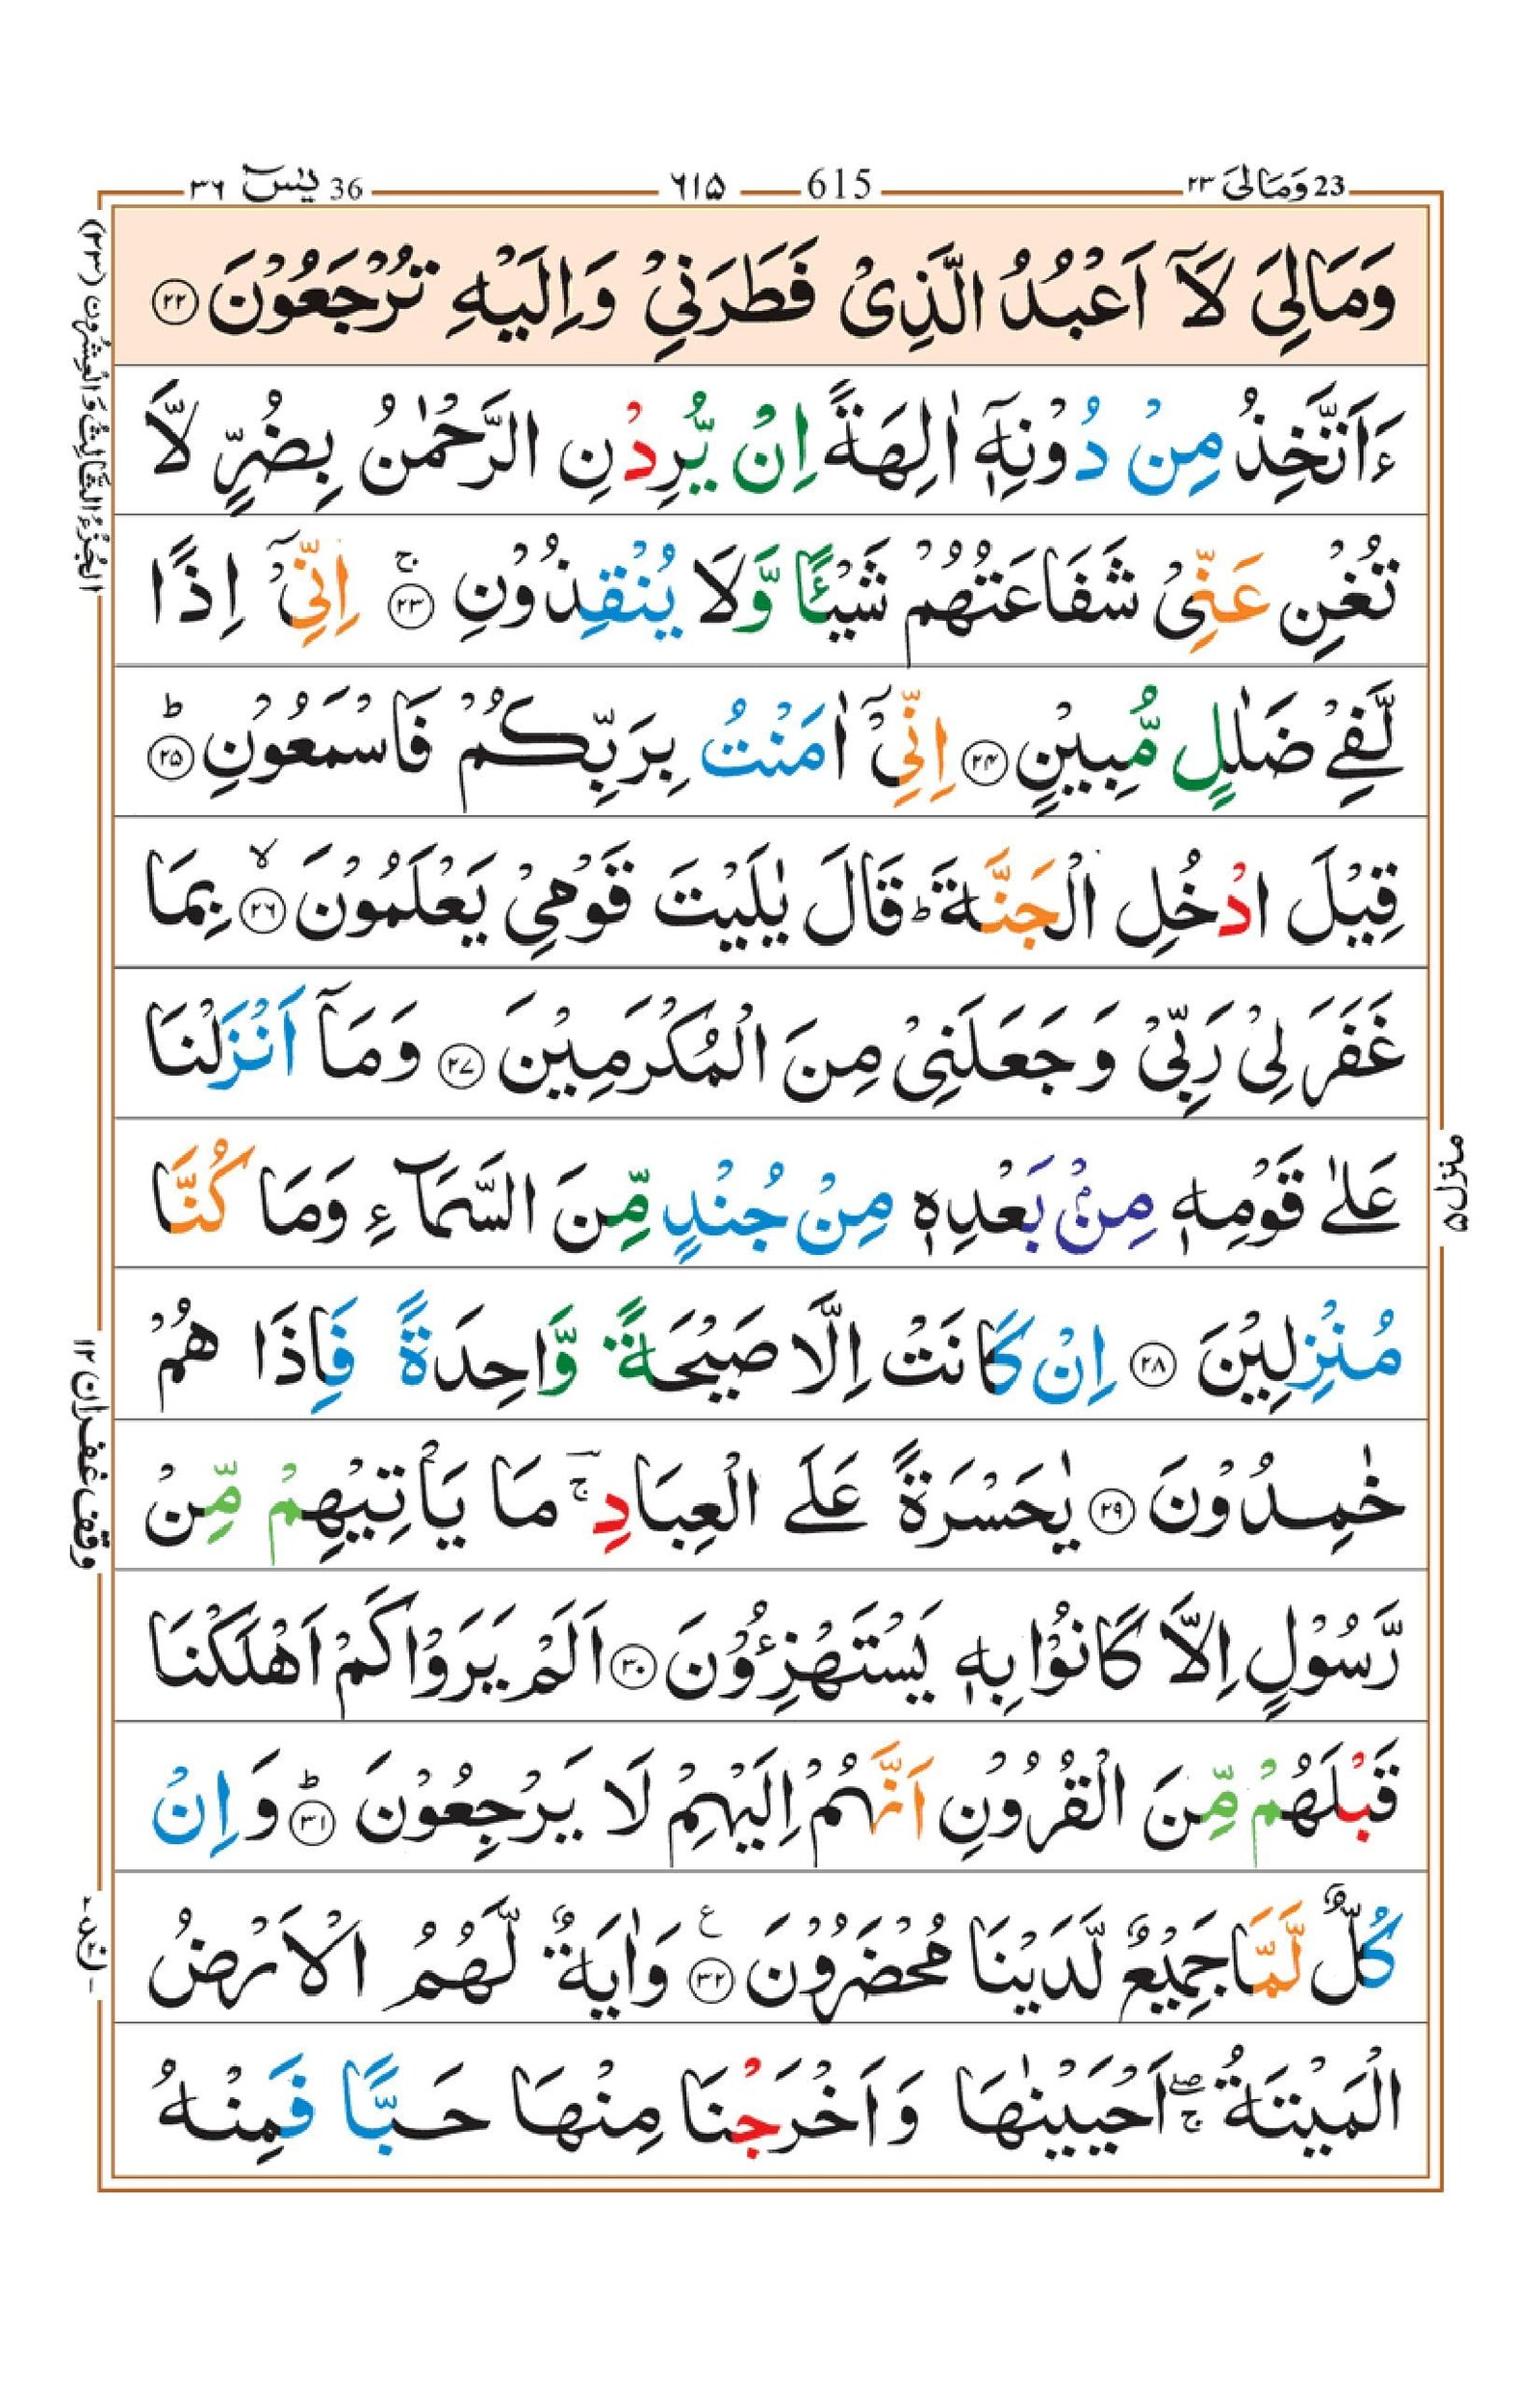 36 يٰسٓ ٣٦
٦١٥ 615
23 وَمَالِیَ ٢٣
وَمَالِیَ لَاۤ اَعْبُدُ الَّذِیْ فَطَرَنِیْ وَاِلَیْهِ تُرْجَعُوْنَ ﴿۲۲﴾
ءَاَتَّخِذُ مِنْ دُوْنِهٖۤ اٰلِهَةً اِنْ یُّرِدْنِ الرَّحْمٰنُ بِضُرٍّ لَّا
تُغْنِ عَنِّیْ شَفَاعَتُهُمْ شَیْـًٔا وَّلَا یُنْقِذُوْنِ ﴿۲۳﴾ۚ اِنِّیْۤ اِذًا
لَّفِیْ ضَلٰلٍ مُّبِیْنٍ ﴿۲۴﴾ اِنِّیْۤ اٰمَنْتُ بِرَبِّكُمْ فَاسْمَعُوْنِ ﴿۲۵﴾ؕ
قِیْلَ ادْخُلِ الْجَنَّةَ ؕ قَالَ یٰلَیْتَ قَوْمِیْ یَعْلَمُوْنَ ﴿۲۶﴾ۙ بِمَا
غَفَرَ لِیْ رَبِّیْ وَجَعَلَنِیْ مِنَ الْمُكْرَمِیْنَ ﴿۲۷﴾ وَمَاۤ اَنْزَلْنَا
عَلٰی قَوْمِهٖ مِنْۢ بَعْدِهٖ مِنْ جُنْدٍ مِّنَ السَّمَآءِ وَمَا كُنَّا
مُنْزِلِیْنَ ﴿۲۸﴾ اِنْ كَانَتْ اِلَّا صَیْحَةً وَّاحِدَةً فَاِذَا هُمْ
خٰمِدُوْنَ ﴿۲۹﴾ یٰحَسْرَةً عَلَی الْعِبَادِ ۚ مَا یَاْتِیْهِمْ مِّنْ
رَّسُوْلٍ اِلَّا كَانُوْا بِهٖ یَسْتَهْزِءُوْنَ ﴿۳۰﴾ اَلَمْ یَرَوْا كَمْ اَهْلَكْنَا
قَبْلَهُمْ مِّنَ الْقُرُوْنِ اَنَّهُمْ اِلَیْهِمْ لَا یَرْجِعُوْنَ ﴿۳۱﴾ؕ وَاِنْ
كُلٌّ لَّمَّا جَمِیْعٌ لَّدَیْنَا مُحْضَرُوْنَ ﴿۳۲﴾ۧ وَاٰیَةٌ لَّهُمُ الْاَرْضُ
الْمَیْتَةُ ۖۚ اَحْیَیْنٰهَا وَاَخْرَجْنَا مِنْهَا حَبًّا فَمِنْهُ
الجُزْءُ الثَّالِثُ وَالْعِشْرُون (٢٣)
وقف غفران ١٢
منزل ۵